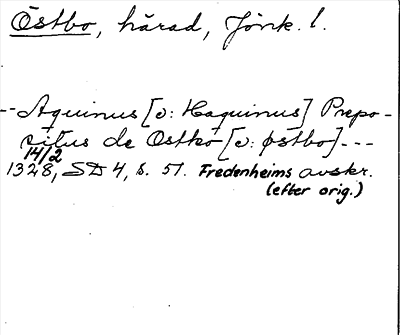 Östbo, härad, Jönk. l.
-- Aquinus [ɔ: Haquinus] Prepo-
situs de Ostko [ɔ: Østbo] ---
14/2
1328, SD 4, s. 51. Fredenheims avskr.
(efter orig.)